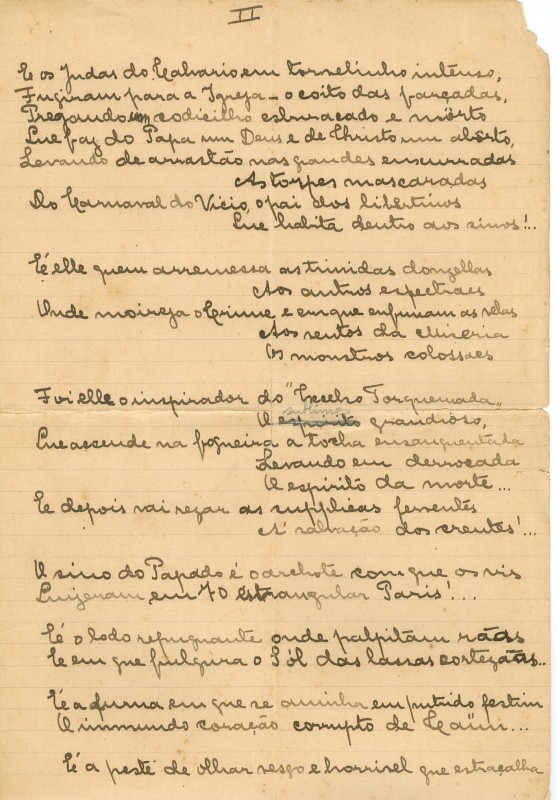 II
E os Judas do Calvario em torvelinho intenso,
Fugiram para a Igreja – o coito das farçadas,
Pregando um codicilho esburacado e môrto
Que faz do Papa um Deus e de Christo um abôrto,
Levando de arrastão nas grandes enxurradas
As torpes mascaradas
Do Carnaval do Vicio, o pai dos libertinos
Que habita dentro dos sinos!..
É elle quem arremessa as timidas donzellas
Aos antros espectraes
Onde moireja o Crime e em que enfunam as velas
Aos ventos da Miseria
Os monstros colossaes
Foi elle o inspirador do "Excelso Torquemada„
O espirito sublime grandioso,
Que accende na fogueira a tocha ensanguentada
Levando em derrocada
O espirito da morte...
E depois vai rezar as supplicas ferventes
Á salvação dos crentes!...
O sino do Papado é o archote com que os vis
Quizeram em 70 estrangular Paris!...
É o lodo repugnante onde palpitam rãas
E em que fulgura o Sól das lassas cortezãas..
É a furna em que se aninha em putrido festim
O immundo coração corrupto de Caïm...
É a peste de olhar vesgo e horrivel que estraçalha